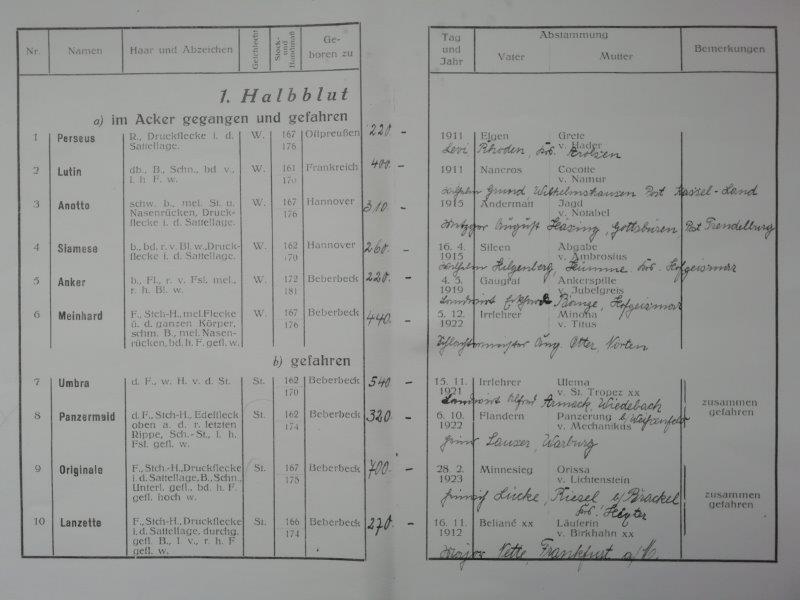 Nr. Namen Haar und Abzeichen Geschlecht Stock- und Bandmaß Ge- boren zu Tag und Jahr Abstammung Vater Mutter Bemerkungen
1. Halbblut
a) im Acker gegangen und gefahren
1 Perseus R., Druckflecke i. d. W. 167 Ostpreußen 220.- 1911 Elgen Grete
Sattellage. 176 v. Hader
Levi Rhoden, Krs. Arolsen
2 Lutin db., B., Schn., bd v., W. 161 Frankreich 400.- 1911 Nancros Cocotte
l. h F. w. 170 v. Namur
Wilhelm Grund Wilhelmshausen Post Kassel-Land
3 Anotto schw. b., mel. St. u. W. 167 Hannover 310.- 1915 Andermatt Jagd
Nasenrücken, Druck- 176 v. Notabel
flecke i. d. Sattellage.
Metzger August Häsing, Gottsbüren Post Trendelburg
4 Siamese b., bd. r. v. Bl. w., Druck- W. 162 Hannover 260.- 16. 4. Sileen Abgabe
flecke i. d. Sattellage. 170 1915 v. Ambrosius
Wilhelm Hilgenberg, Hümme Krs. Hofgeismar
5 Anker b., Fl., r. v. Fsl. mel., W. 172 Beberbeck 220.- 4. 5. Gaugraf Ankerspille
r. h. Bl. w. 181 1919 v. Jubelgreis
Landwirt Hofgeismar
6 Meinhard F., Stch-H., mel. Flecke W. 167 Beberbeck 440.- 5. 12. Irrlehrer Minona
ü. d. ganzen Körper, 176 1922 v. Titus
schm. B., mel. Nasen-
rücken, bd. h. F. gefl. w.
Schlachtermeister Aug. Otter, Norten
b) gefahren
7 Umbra d. F., w. H. v. d. St. St. 162 Beberbeck 540.- 15. 11. Irrlehrer Ulema
170 1921 v. St. Tropez xx
Landwirt Alfred Wiedebach zusammen
b/Weißenfels gefahren
8 Panzermaid d. F., Stch-H., Edelfleck St. 162 Beberbeck 320.- 6. 10. Flandern Panzerung
oben a. d. r. letzten 174 1922 v. Mechanikus
Rippe, Sch.-St., l. h.
Fsl. gefl. w.
Lauser, Warburg
9 Originale F., Stch-H., Druckflecke St. 167 Beberbeck 700.- 28. 2. Minnesieg Orissa
i. d. Sattellage, B., Schn., 175 1923 v. Lichtenstein
Unterl. gefl., bd. h. F.
gefl. hoch w.
Heinrich Lücke, Riesel b/Brackel zusammen
Krs. Höxter gefahren
10 Lanzette F., Stch-H., Druckflecke St. 166 Beberbeck 270.- 16. 11. Beliané xx Läuferin
i. d. Sattellage, durchg. 174 1912 v. Birkhahn xx
gefl. B., l v., r. h. F
gefl. w.
Major Vette, Frankfurt a/M.